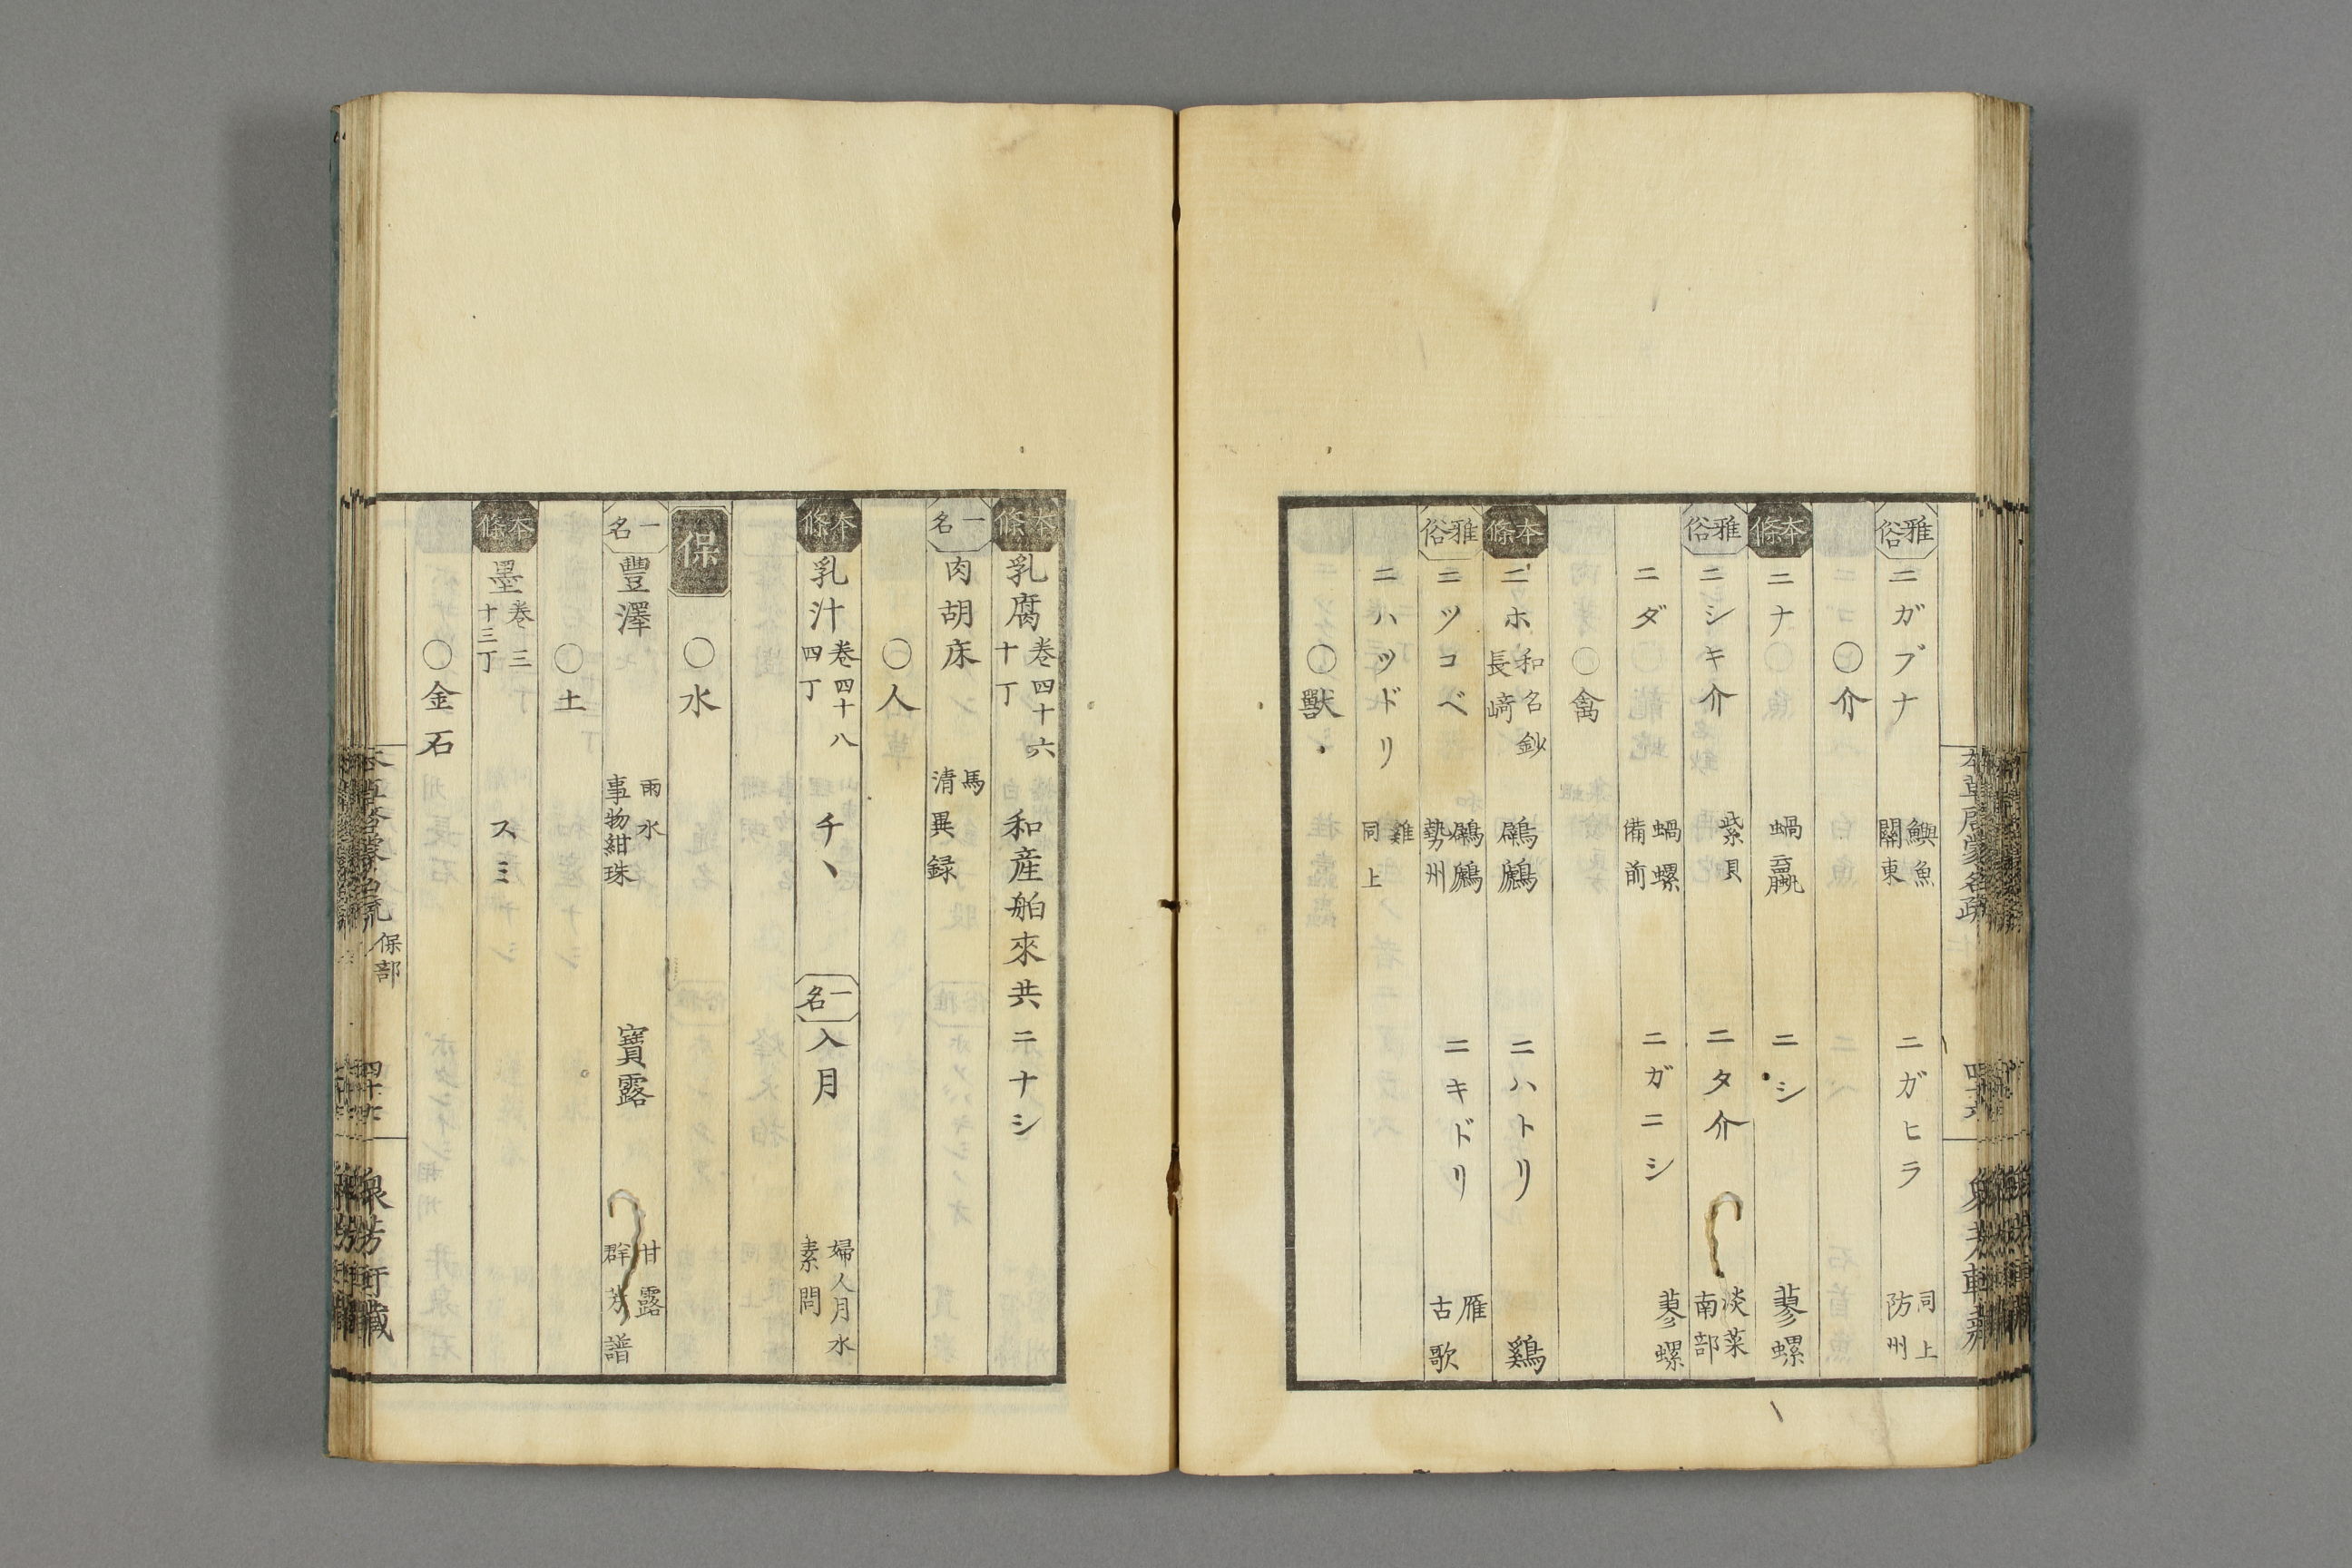 雅俗 ニガブナ 鱮魚 關東 ニガヒラ 同上 防州
〇介
本條 ニナ 蝸蠃 ニシ 蓼螺
雅俗 ニシキ介 紫貝 ニタ介 淡菜 南部
ニダ 蝸螺 備前 ニガニシ 蓼螺
〇禽
本條 ニホ 和名鈔 長﨑 鸊鷉 ニハトリ 鷄
雅俗 ニツコベ 鸊鷉 勢州 ニキドリ 雁 古歌
ニハツドリ 雞 同上
〇獸
本條 乳腐 卷四十六 十丁 和産舶來共ニナシ
一名 肉胡床 馬 清異録
〇人
本條 乳汁 卷四十八 四丁 チヽ 一名 入月 婦人月水 素問
保
〇水
一名 豐澤 雨水 事物紺珠 寶露 甘露 群芳譜
〇土
本條 墨 卷三 十三丁 スミ
〇金石
保部